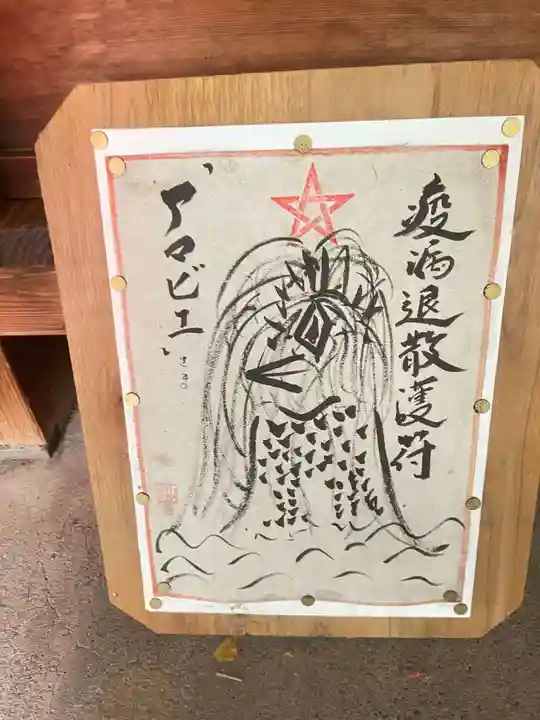 疫病退散護符
「アマビエ」
さま。